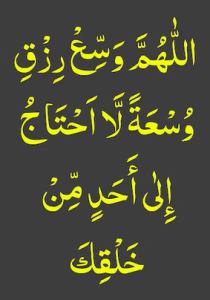 اَللّٰهُمَّ وَسِّعْ رِزْقِ
وُسْعَةً لَّا اَحْتَاجُ
إِلىٰ أَحَدٍ مِّنْ
خَلْقِكَ